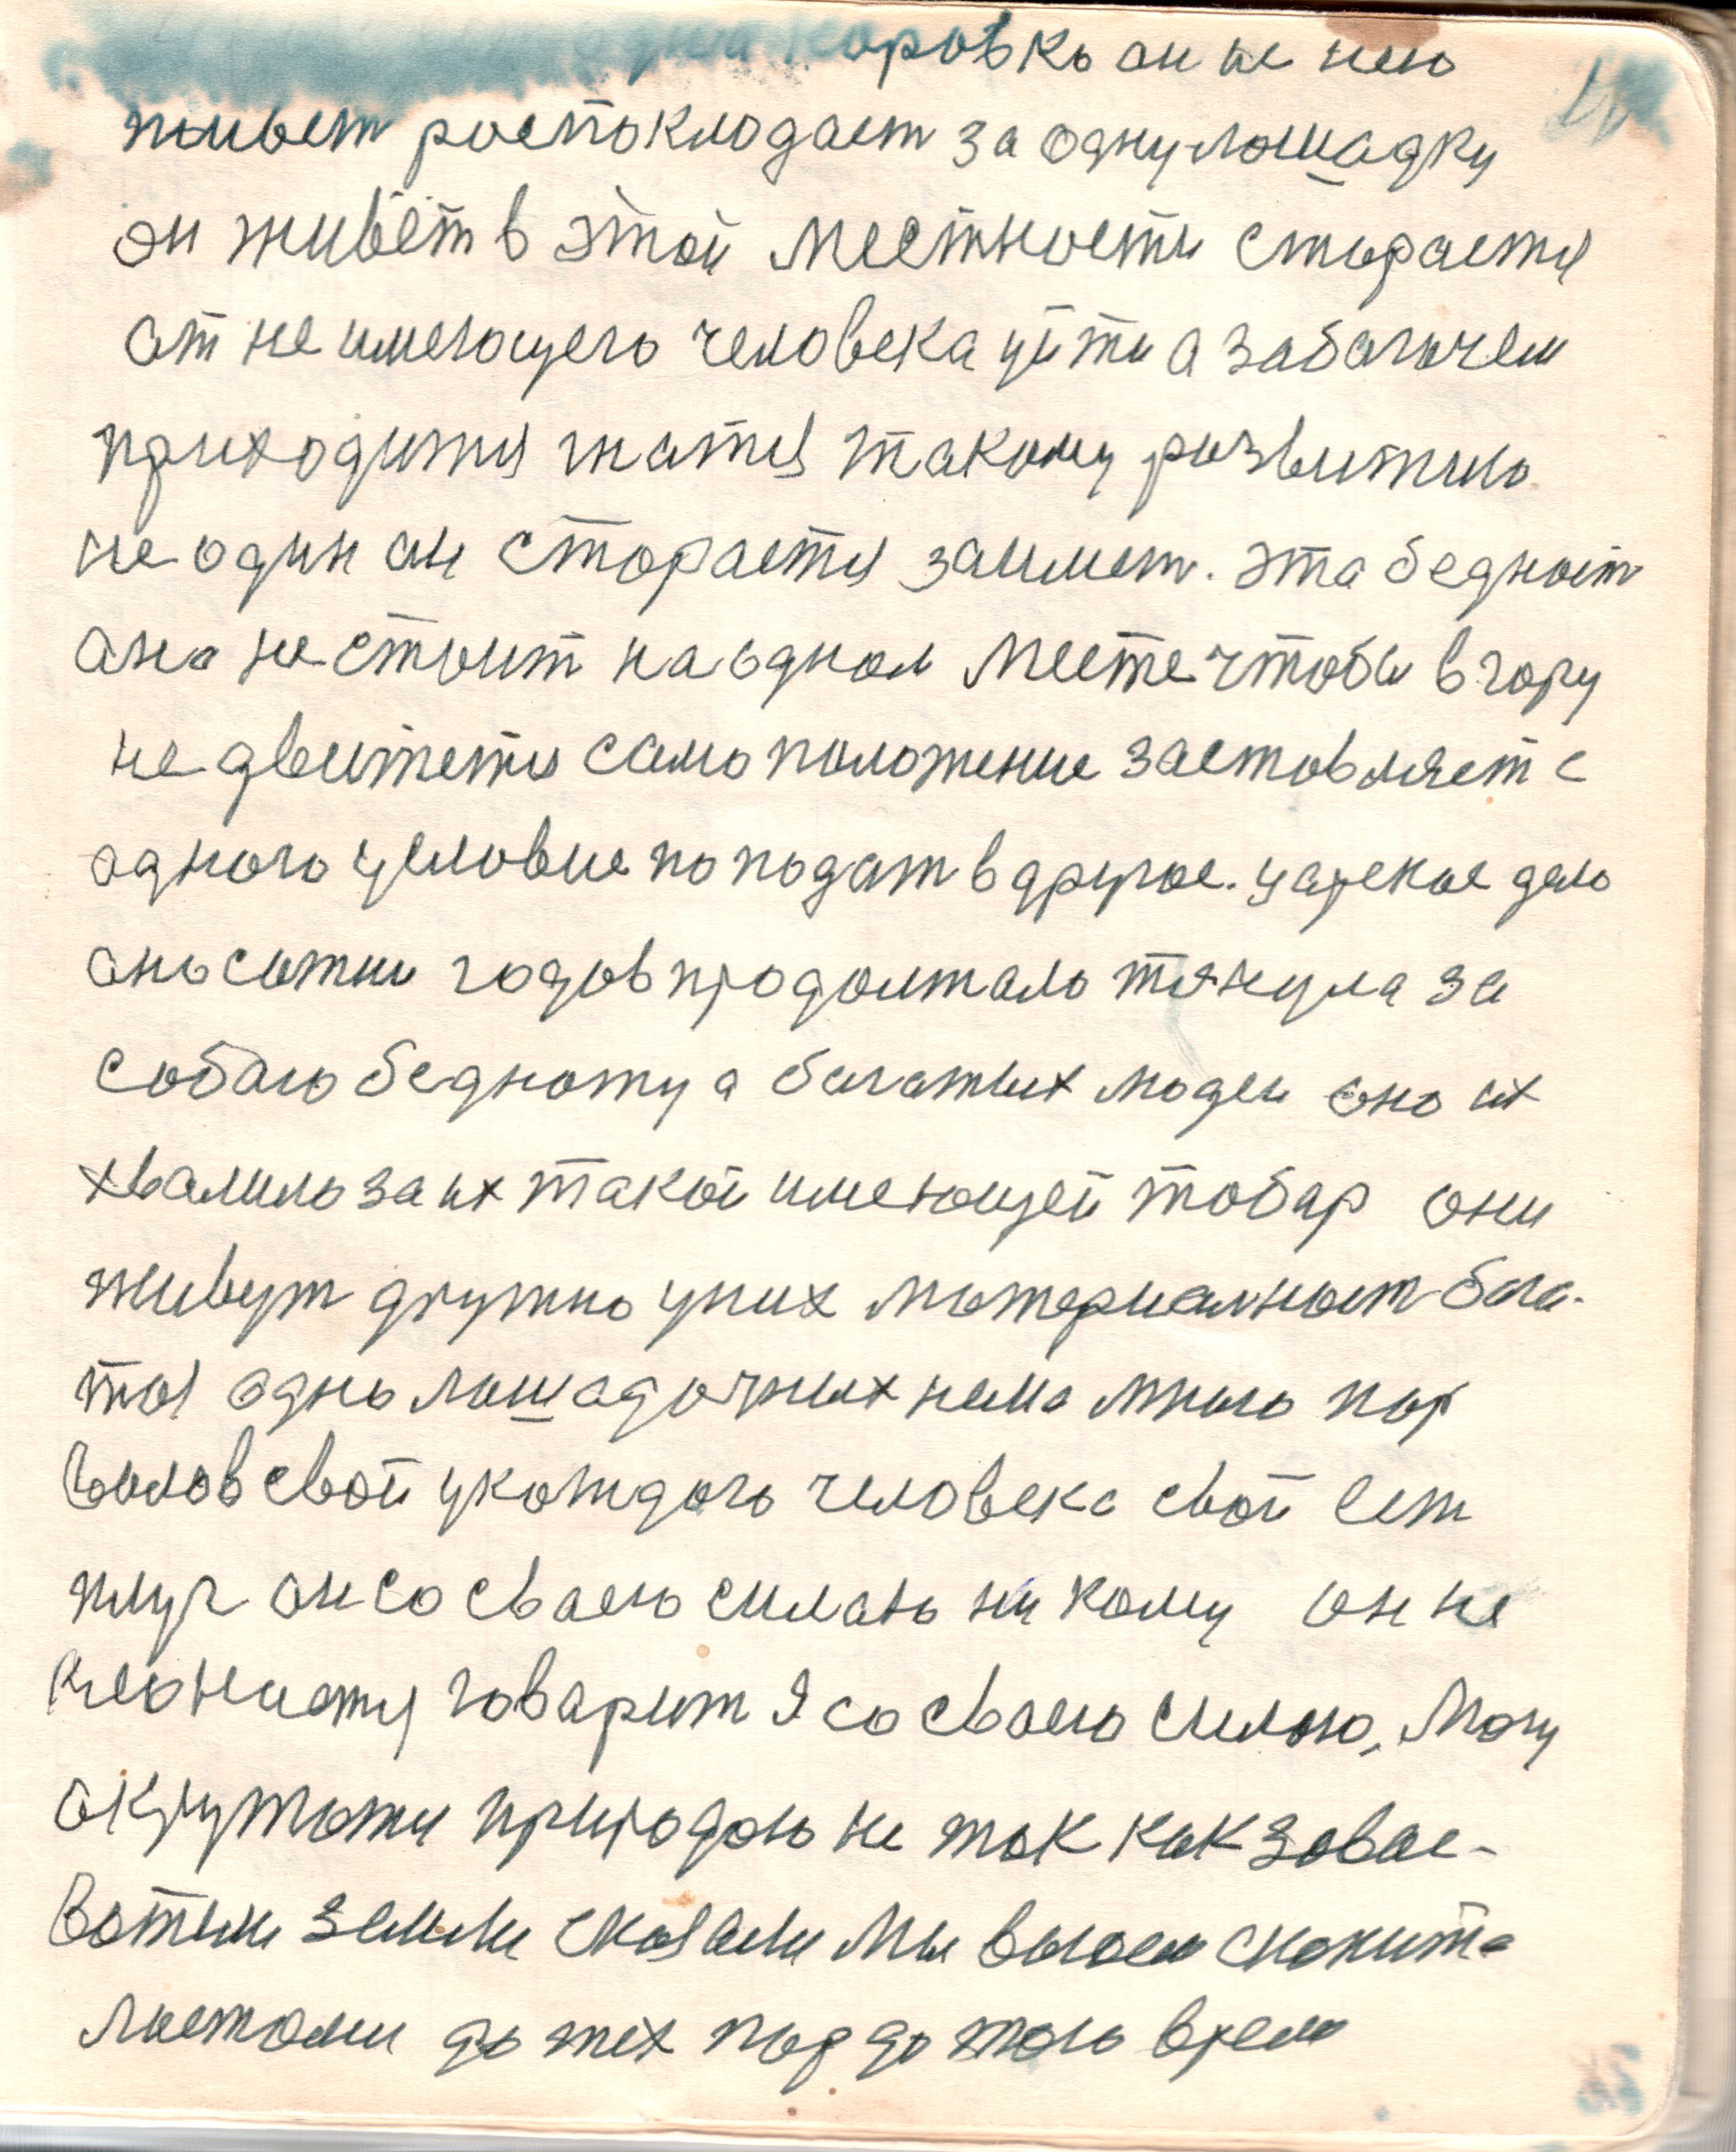 одна коровка он на нею
живет роспокладает за одну лошадку
он живет в этой местности старается
от не имеющего человека уйти а забагачем
приходится гнатся такому розвитию
не один он старается займет. эта бедност
она не стоит на одном месте чтобы вгору
не двигется само положение заставляет с
одного условие поподат в другое. царское дело
оно сотни годов продолжало тянула за
собаю бедноту а багатых людей оно их
хвалило за их такой имеющей товар они
живут дружно уних материалност бага-
тая одно лошадочных нема много пар
волов свой укаждого человека свой ест
плуг он со сваею силаю ни кому он не
клонится говарит я со сваею силою, могу
окружати природою не так как завае-
ватили земли сказали мы воюем скапита
листами до тех пор до того время